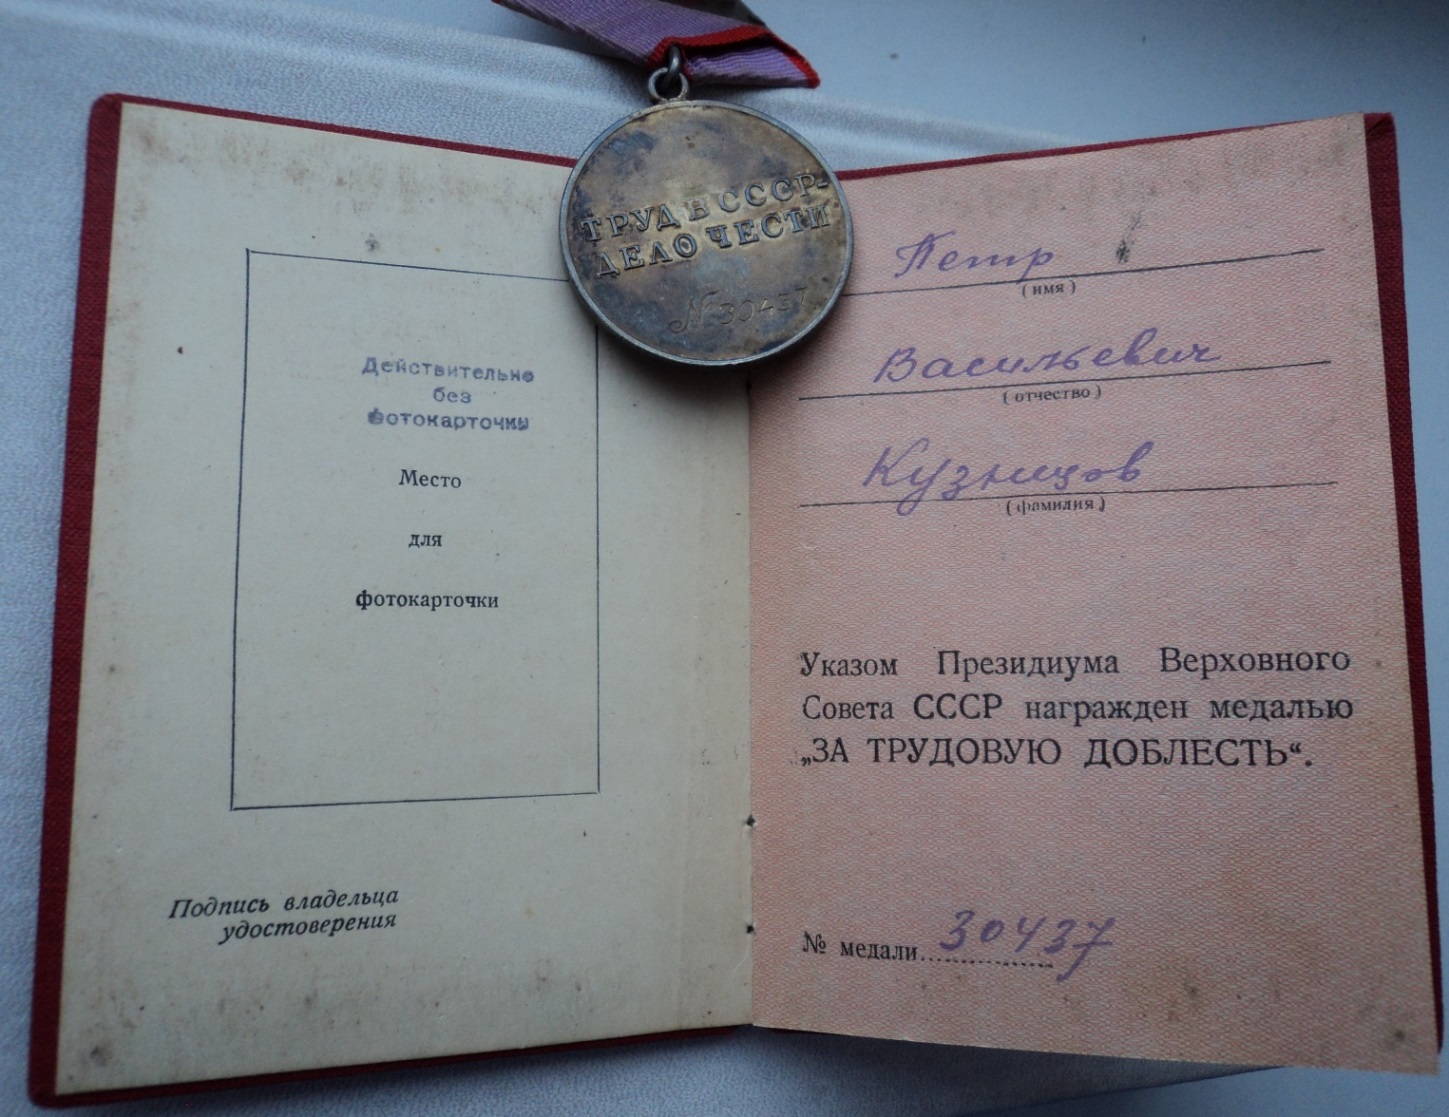 ТРУД В СССР-
ДЕЛО ЧЕСТИ
№ 30437
Действительно
без
фотокарточки
Место
для
фотокарточки
Подпись владельца
удостоверения
Петр
(имя)
Васильевич
(отчество)
Кузнецов
(фамилия)
Указом Президиума Верховного
Совета СССР награжден медалью
„ЗА ТРУДОВУЮ ДОБЛЕСТЬ“.
№ медали 30437